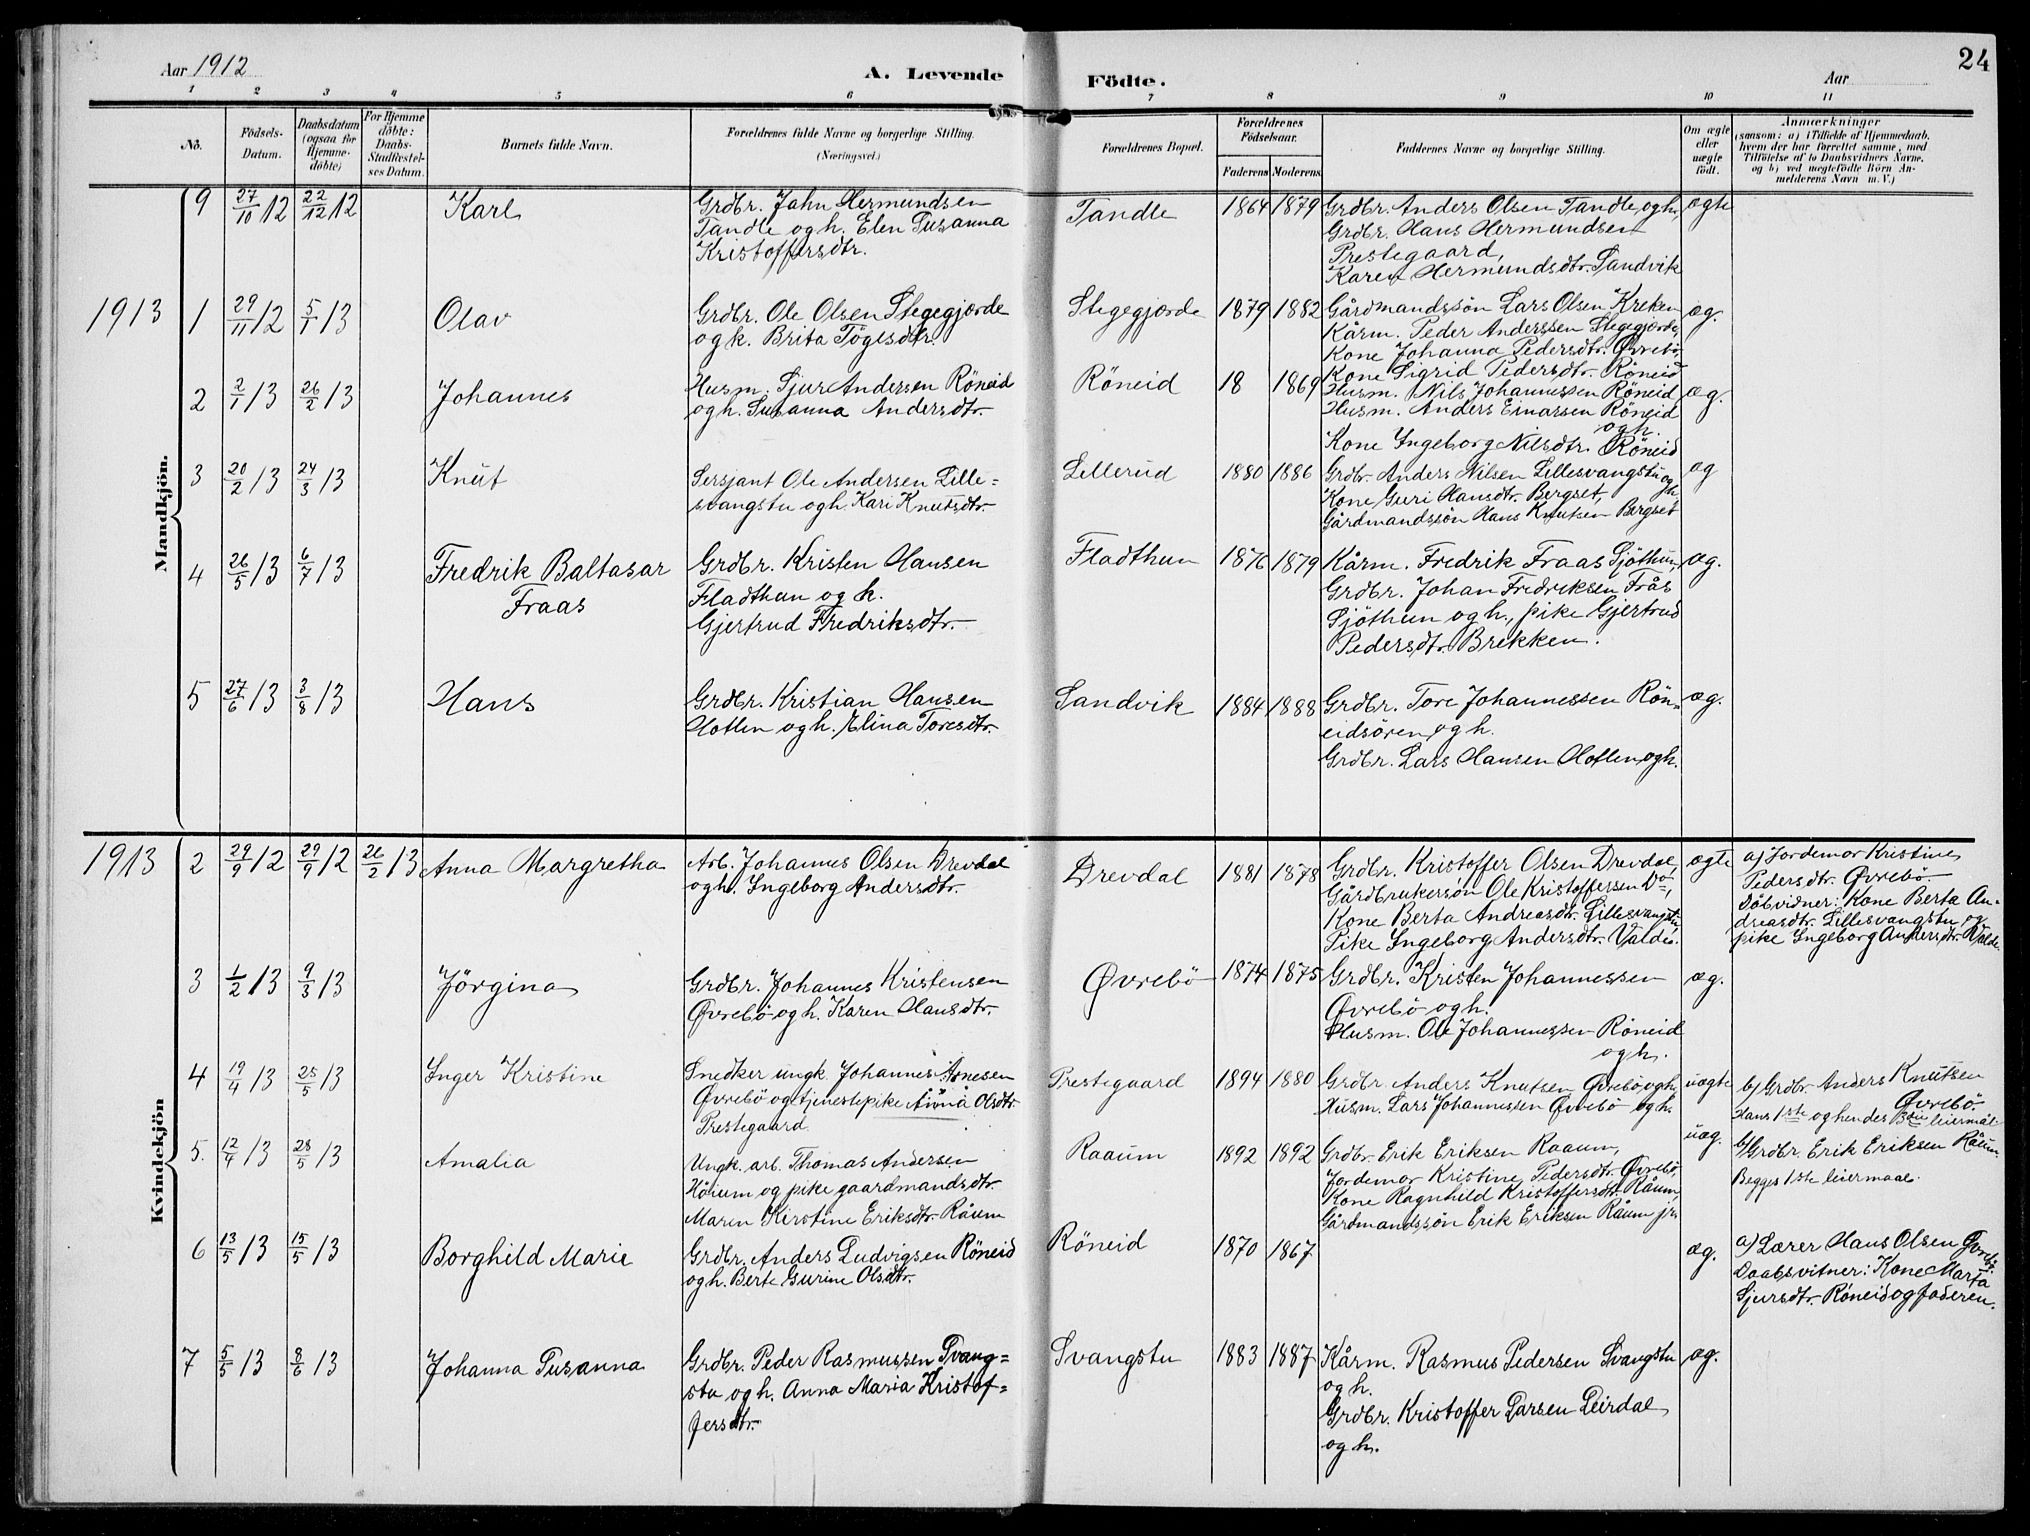 24
Aar 1912
A. Levende
Födte.
Aar
1 2 3 4 5 6 7 8 9 10 11
No.
Födsels-
Datum.
Daabsdatum
(ogsaa for
Hjemme-
döbte)
For Hjemme
döbte:
Daabs-
Stadfæstel-
ses Datum.
Barnets fulde Navn.
Forældrenes fulde Navne og borgerlige Stilling.
(Næringsvei.)
Forældrenes Bopæl.
Forældrenes
Födselsaar.
Faderens Moderens
Faddernes Navne og borgerlige Stilling.
Om ægte
eller
uægte
födt.
Anmærkninger
(saasom: a) i Tilfælde af Hjemmedaab,
hvem der har forrettet samme, med
Tilföielse af to Daabsvidners Navne,
og b) ved uægtefödte Börn An-
melderens Navn m. V.)
Mandkjön.
9 27/10 12 22/12 12 Karl
Grdbr. Jahn Hermundsen
Tandle og h. Elen Susanna
Kristoffersdtr.
Tandle 1864 1879
Grdbr. Anders Olsen Tandle og h,
Grdbr. Hans Hermundsen
Prestegaard,
Karen Hermundsdtr. Sandvik
ægte
1913 1 29/11 12 5/1 13 Olav
Grdbr. Ole Olsen Stegegjorde
og k. Brita Tögesdtr.
Stegegjorde 1879 1882
Gårdmandssön Lars Olsen Kreken
Kårm. Peder Anderssen Stegegjorde,
Kone Johanna Pedersdtr. Övrebö
Kone Sigrid Pedersdtr. Röneid
æg.
2 2/1 13 26/2 13 Johannes
Husm. Sjur Andersen Röneid
og h. Susanna Andersdtr.
Röneid 18 1869
Husm. Nils Johannessen Röneid
Husm. Anders Einarsen Röneid
og h.
Kone Ingeborg Nilsdtr. Röneid
æg.
3 20/2 13 24/3 13 Knut
Sersjant Ole Andersen Lille=
svangstu og h. Kari Knutsdtr.
Lillerud 1880 1886
Grdbr. Anders Nilsen Lillesvangstu og h
Kone Guri Hansdtr. Bergset
Gårdmandssön Hans Knutsen Bergset
æg
4 26/5 13 6/7 13 Fredrik Baltasar
Fraas
Grdbr. Kristen Hansen
Fladthun og h.
Gjertrud Fredriksdtr.
Fladthun 1876 1879
Kårm. Fredrik Fraas Sjöthun,
Grdbr. Johan Fredriksen Frås
Sjöthun og h., pike Gjertrud
Pedersdtr. Brekken.
æg.
5 27/6 13 3/8 13 Hans
Grdbr. Kristian Hansen
Hotlen og h. Elina Toresdtr.
Sandvik 1884 1888
Grdbr. Tore Johannessen Rön=
eidsören og h.
Grdbr. Lars Hansen Hotlen og h.
æg.
Kvindekjön
1913 2 29/9 12 29/9 12 26/2 13 Anna Margretha
Arb. Johannes Olsen Drevdal
og h. Ingeborg Andersdtr.
Drevdal 1881 1878
Grdbr. Kristoffer Olsen Drevdal,
Gårdbrukersön Ole Kristoffersen Do,
Kone Berta Andreasdtr. Lillesvangstu
Pike Ingeborg Andersdtr. Valde.
ægte
a) Jordemor Kristine
Pedersdtr. Övrebö.
Döbvidner: Kone Berta An=
dreasdtr. Lillesvangstu og
pike Ingeborg Andersdtr. Valde.
3 1/2 13 9/3 13 Jörgina
Grdbr. Johannes Kristensen
Övrebö og h. Karen Hansdtr.
Övrebö 1874 1875
Grdbr. Kristen Johannessen
Övrebö og h.
Husm. Ole Johannessen Röneid
og h.
æg.
4 19/4 13 25/5 13 Inger Kristine
Snedker ungk. Johannes Arnesen
Övrebö og tjenestepike Anna Olsdtr.
Prestegaard
Prestegaard 1894 1880
Grdbr. Anders Knutsen Övrebö og h,
Husm. Lars Johannessen Övrebö og h.
uægte
b) Grdbr. Anders Knutsen
Övrebö.
Hans 1ste og hendes 3die leiermål
5. 12/4 13 28/5 13 Amalia
Ungk. arb. Thomas Andersen
Höium og pike gaardmandsdtr.
Maren Kirstine Eriksdtr. Råum
Raaum 1892 1892
Grdbr. Erik Eriksen Raaum,
Jordemor Kristine Pedersdtr. Övrebö,
Kone Ragnhild Kristoffersdtr. Råum,
Gårdmandssön Erik Eriksen Råum jr.
uæg.
b) Grdbr. Erik Eriksen Råum
Begges 1ste leiermaal.
6 13/5 13 15/5 13 Borghild Marie
Grdbr. Anders Ludvigsen Röneid
og h. Berte Gurine Olsdtr.
Röneid 1870 1867
æg.
a) Lærer Hans Olsen Övrebö.
Daabsvitner: Kone Marta
Sjursdtr. Röneid og faderen.
7 5/5 13 8/6 13 Johanna Susanna
Grdbr. Peder Rasmussen Svang=
stu og h. Anna Maria Kristof=
fersdtr.
Svangstu 1883 1887
Kårm. Rasmus Pedersen Svangstu
og h.
Grdbr. Kristoffer Larsen Leirdal
og h.
æg.